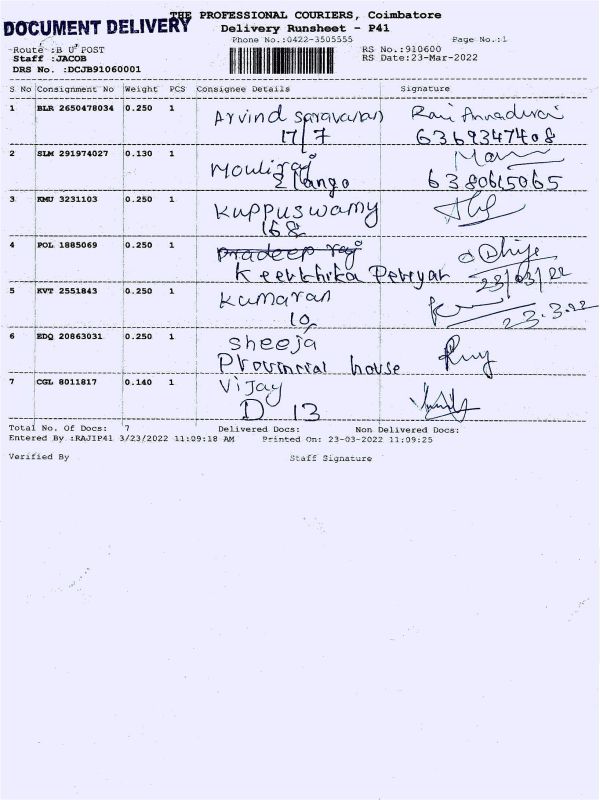 THE PROFESSIONAL COURIERS, Coimbatore
DOCUMENT DELIVERY
Delivery Runsheet - P41
Phone No.:0422-3505555 Page No.:1
Route :B U POST RS No.:910600
Staff :JACOB RS Date:23-Mar-2022
DRS No. :DCJB91060001
S No Consignment No Weight PCS Consignee Details Signature
1 BLR 2650478034 0.250 1 Arvind saravanan Ravi Annadurai
17/7 6369347408
2 SLM 291974027 0.130 1 Mouliraj
Elango 6380615065
3 KMU 3231103 0.250 1 Kuppuswamy
168
4 POL 1885069 0.250 1 Pradeep raj
Keerthika Periyar 23/03/22
5 KVT 2551843 0.250 1 Kumaran
10 23.3.22
6 EDQ 20863031 0.250 1 Sheeja
Provincial house
7 CGL 8011817 0.140 1 Vijay
D 13
Total No. Of Docs: 7 Delivered Docs: Non Delivered Docs:
Entered By :RAJIP41 3/23/2022 11:09:18 AM Printed On: 23-03-2022 11:09:25
Verified By Staff Signature